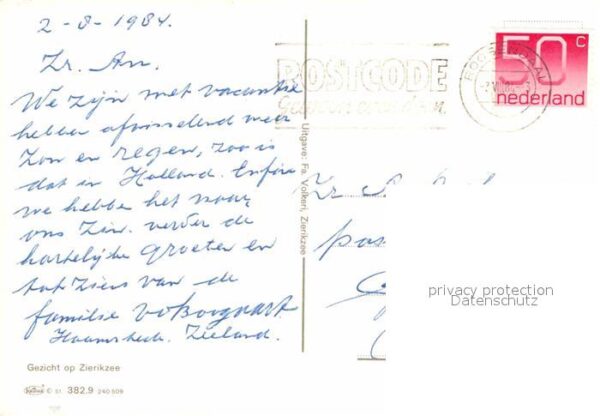 2-8-1984.
Zr. An.
We zijn met vacantie
hebben afwisselend weer
Zon en regen, zoo is
dat in Holland. Enfin
we hebben het naar
ons Zin. verder de
hartelijke groeten en
tot Ziens van de
familie
Haamstede. Zeeland.
Gezicht op Zierikzee
© 51 382.9 240 509
Uitgave: Fa. Volkeri, Zierikzee
POSTCODE
Gewoon even doen.
ROOSENDAAL
50 c
nederland
Zr
pos
privacy protection
Datenschutz